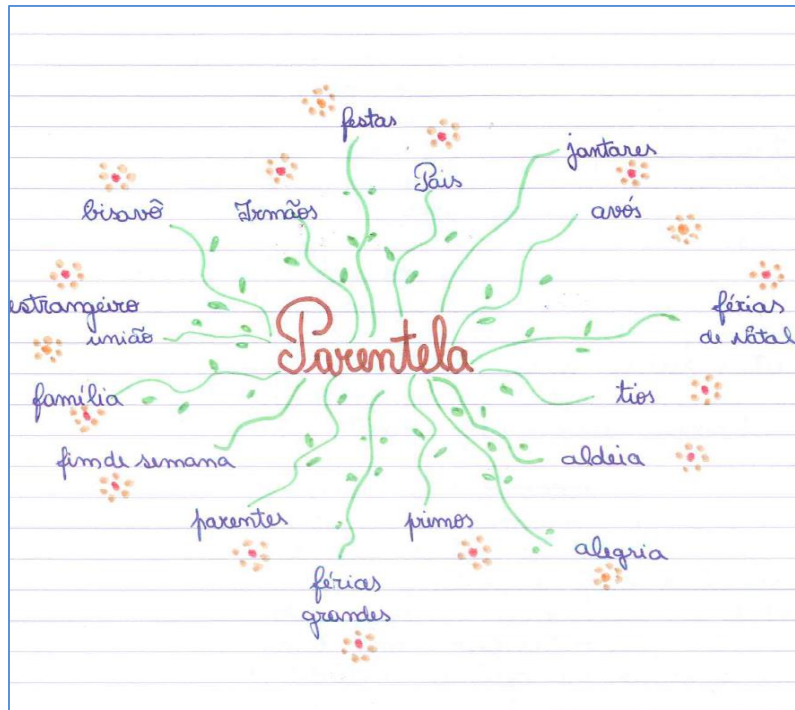 festas
Pais
jantares
bisavô
Irmãos
avós
estrangeiro
união
Parentela
férias
de Natal
família
tios
fim de semana
aldeia
parentes
primos
alegria
férias
grandes